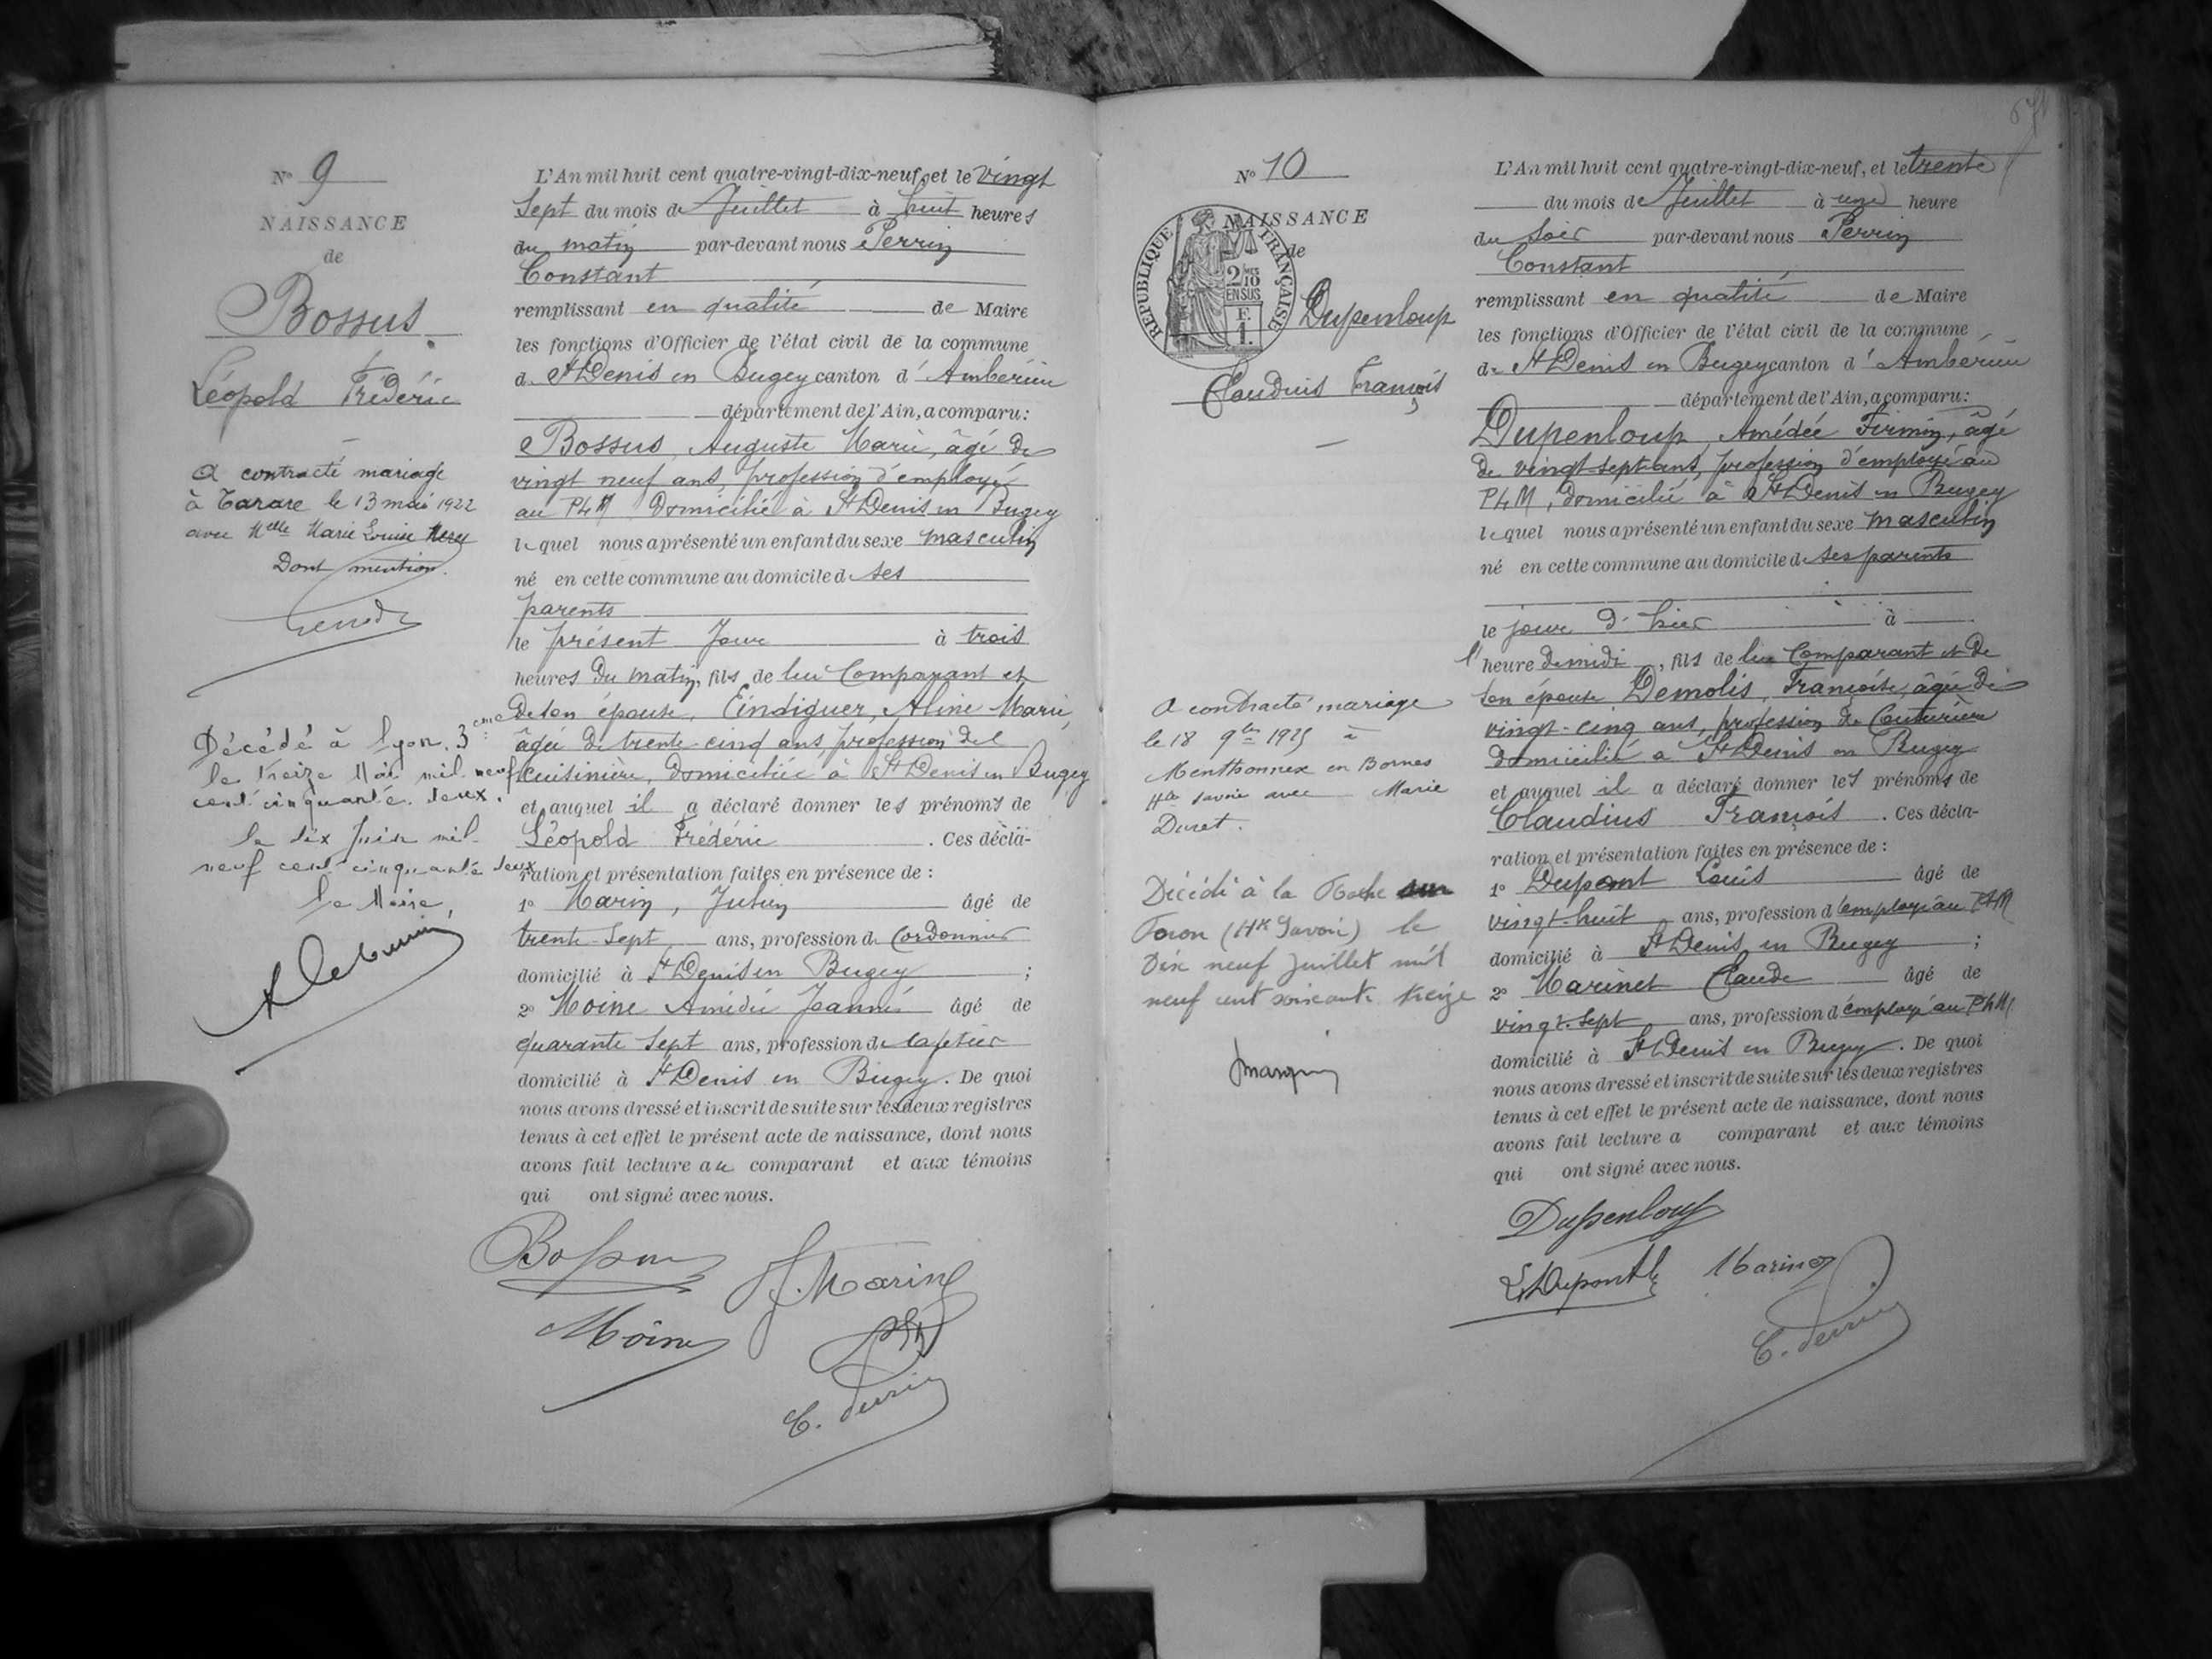 Nº 9
NAISSANCE
de
Bossus
Léopold Frédéric
A contracté mariage
à Tarare le 13 mai 1922
avec Melle Marie Louise
Dont mention.
Décédé à Lyon, 3ème
le treize Mai mil neuf
cent cinquante deux.
le six juin mil
neuf cent cinquante deux
Le Maire,
L'An mil huit cent quatre-vingt-dix-neuf, et le vingt
Sept du mois de Juillet à huit heures
du matin par-devant nous Perrin
Constant
remplissant en qualité de Maire
les fonctions d'Officier de l'état civil de la commune
de St Denis en Bugey canton d'Ambérieu
département de l'Ain, a comparu:
Bossus, Auguste Marie, âgé de
vingt neuf ans, profession d'employé
au PLM domicilié à St Denis en Bugey
lequel nous a présenté un enfant du sexe masculin
né en cette commune au domicile de ses
parents
le présent Jour à trois
heures du matin, fils de lui Comparant et
de son épouse, Eindiguer, Aline Marie,
âgée de trente-cinq ans profession de
cuisinière, domiciliée à St Denis en Bugey
et auquel il a déclaré donner les prénoms de
Léopold Frédéric . Ces décla-
ration et présentation faites en présence de :
1º Marin, Julien âgé de
trente-Sept ans, profession de Cordonnier
domicilié à St Denis en Bugey ;
2º Moine Amédée Jeanné âgé de
quarante Sept ans, profession de cafetier
domicilié à St Denis en Bugey. De quoi
nous avons dressé et inscrit de suite sur les deux registres
tenus à cet effet le présent acte de naissance, dont nous
avons fait lecture au comparant et aux témoins
qui ont signé avec nous.
Bossus
J. Marin
Moine
C. Perrin
Nº 10
NAISSANCE
de
RÉPUBLIQUE FRANÇAISE
2/10
EN SUS
F.
1.
Dupenloup
Claudius François
A contracté mariage
le 18 9bre 1925 à
Menthonnex en Bornes
Hte Savoie avec Marie
Duret.
Décédé à la Roche sur
Foron (Hte Savoie) le
Dix neuf juillet mil
neuf cent soixante treize
L'An mil huit cent quatre-vingt-dix-neuf, et le trente
du mois de Juillet à une heure
du Soir par-devant nous Perrin
Constant
remplissant en qualité de Maire
les fonctions d'Officier de l'état civil de la commune
de St Denis en Bugey canton d'Ambérieu
département de l'Ain, a comparu:
Dupenloup, Amédée Firmin, âgé
de vingt-sept ans, profession d'employé au
PLM, domicilié à St Denis en Bugey
lequel nous a présenté un enfant du sexe masculin
né en cette commune au domicile de ses parents
le jour d'hier à
l'heure de midi, fils de lui Comparant et de
son épouse Demolis, Françoise, âgée de
vingt-cinq ans, profession de Couturière
domiciliée à St Denis en Bugey
et auquel il a déclaré donner les prénoms de
Claudius François . Ces décla-
ration et présentation faites en présence de :
1º Dupont Louis âgé de
vingt-huit ans, profession d'employé au PLM
domicilié à St Denis en Bugey ;
2º Marinet Claude âgé de
vingt-Sept ans, profession d'employé au PLM
domicilié à St Denis en Bugey. De quoi
nous avons dressé et inscrit de suite sur les deux registres
tenus à cet effet le présent acte de naissance, dont nous
avons fait lecture a comparant et aux témoins
qui ont signé avec nous.
Dupenloup
L Dupont
Marinet
C. Perrin